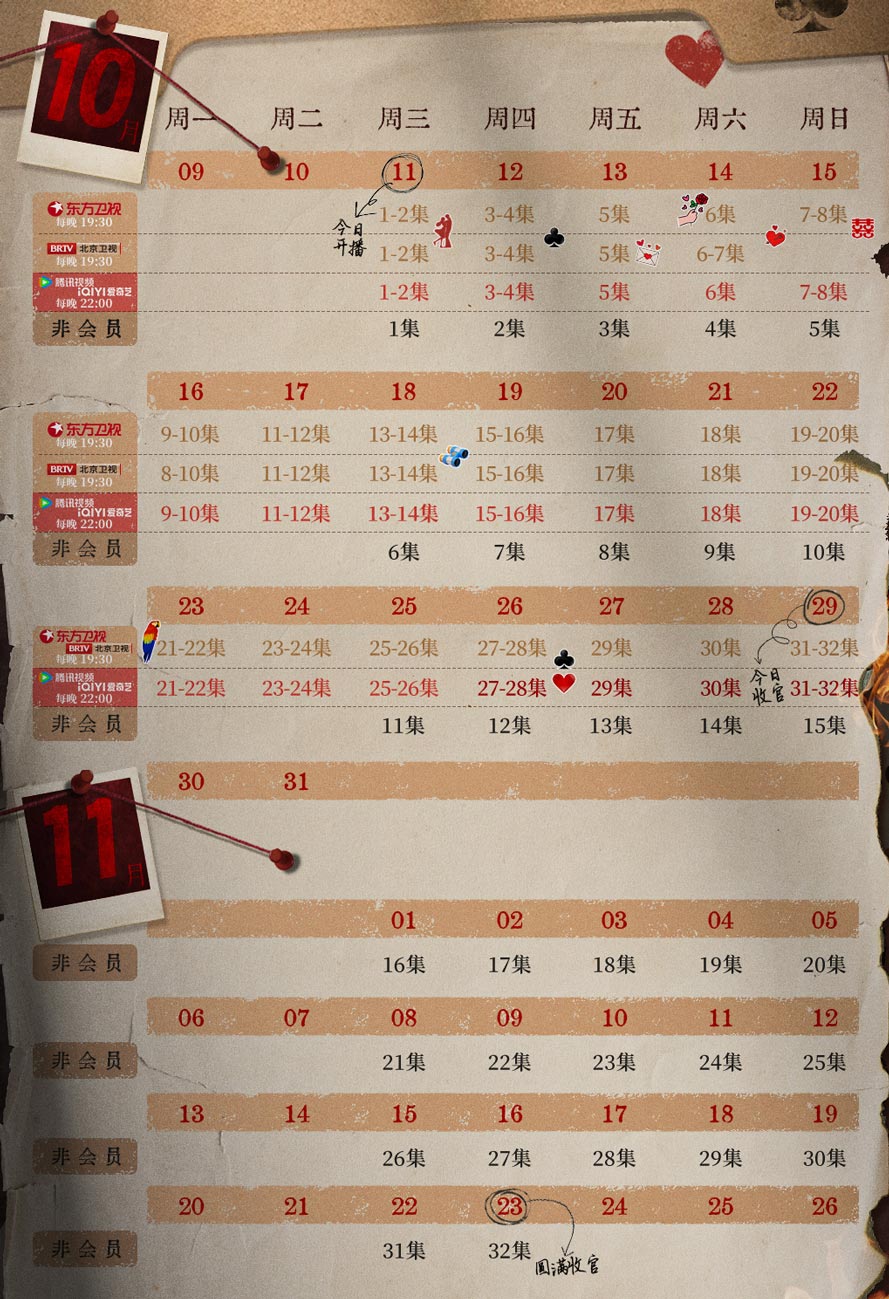 10月
周一 周二 周三 周四 周五 周六 周日
09 10 11 12 13 14 15
今日
开播
东方卫视 每晚 19:30 1-2集 3-4集 5集 6集 7-8集
BRTV 北京卫视 每晚 19:30 1-2集 3-4集 5集 6-7集
囍
腾讯视频 iQIYI爱奇艺 每晚 22:00 1-2集 3-4集 5集 6集 7-8集
非会员 1集 2集 3集 4集 5集
16 17 18 19 20 21 22
东方卫视 每晚 19:30 9-10集 11-12集 13-14集 15-16集 17集 18集 19-20集
BRTV 北京卫视 每晚 19:30 8-10集 11-12集 13-14集 15-16集 17集 18集 19-20集
腾讯视频 iQIYI爱奇艺 每晚 22:00 9-10集 11-12集 13-14集 15-16集 17集 18集 19-20集
非会员 6集 7集 8集 9集 10集
23 24 25 26 27 28 29
东方卫视 BRTV 北京卫视 每晚 19:30 21-22集 23-24集 25-26集 27-28集 29集 30集 31-32集
腾讯视频 iQIYI爱奇艺 每晚 22:00 21-22集 23-24集 25-26集 27-28集 29集 30集 31-32集
今日
收官
非会员 11集 12集 13集 14集 15集
30 31
11月
01 02 03 04 05
非会员 16集 17集 18集 19集 20集
06 07 08 09 10 11 12
非会员 21集 22集 23集 24集 25集
13 14 15 16 17 18 19
非会员 26集 27集 28集 29集 30集
20 21 22 23 24 25 26
非会员 31集 32集
圆满收官